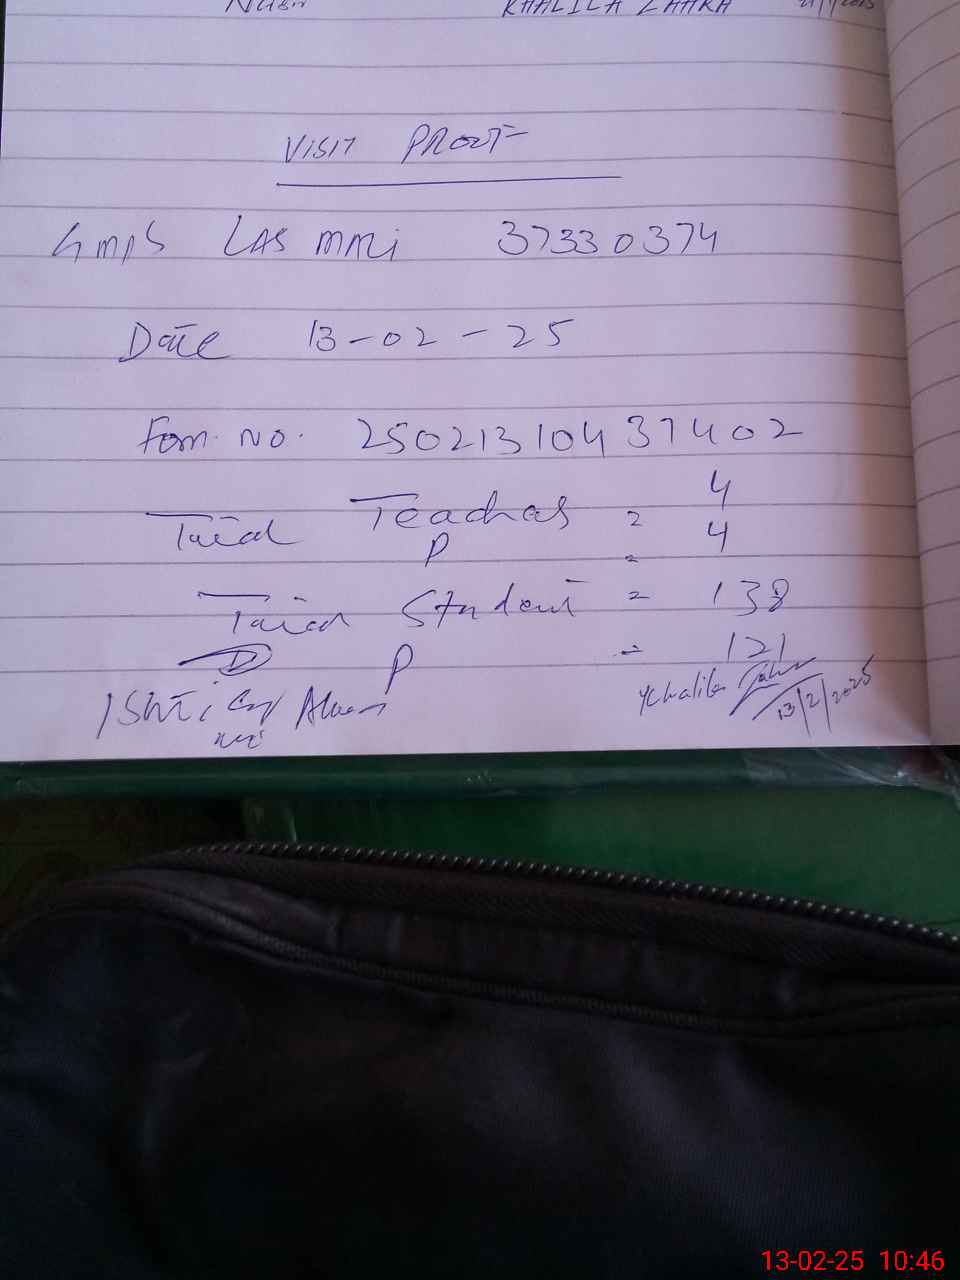 KHALILA ZAHRA
VISIT PROOF
GMPS LAS MARI 37330374
Date 13-02-25
Form. No. 25021310437402
Total Teachers = 4
P = 4
Total Student = 138
P = 121
Khalila Zahra
13/2/2025
13-02-25 10:46